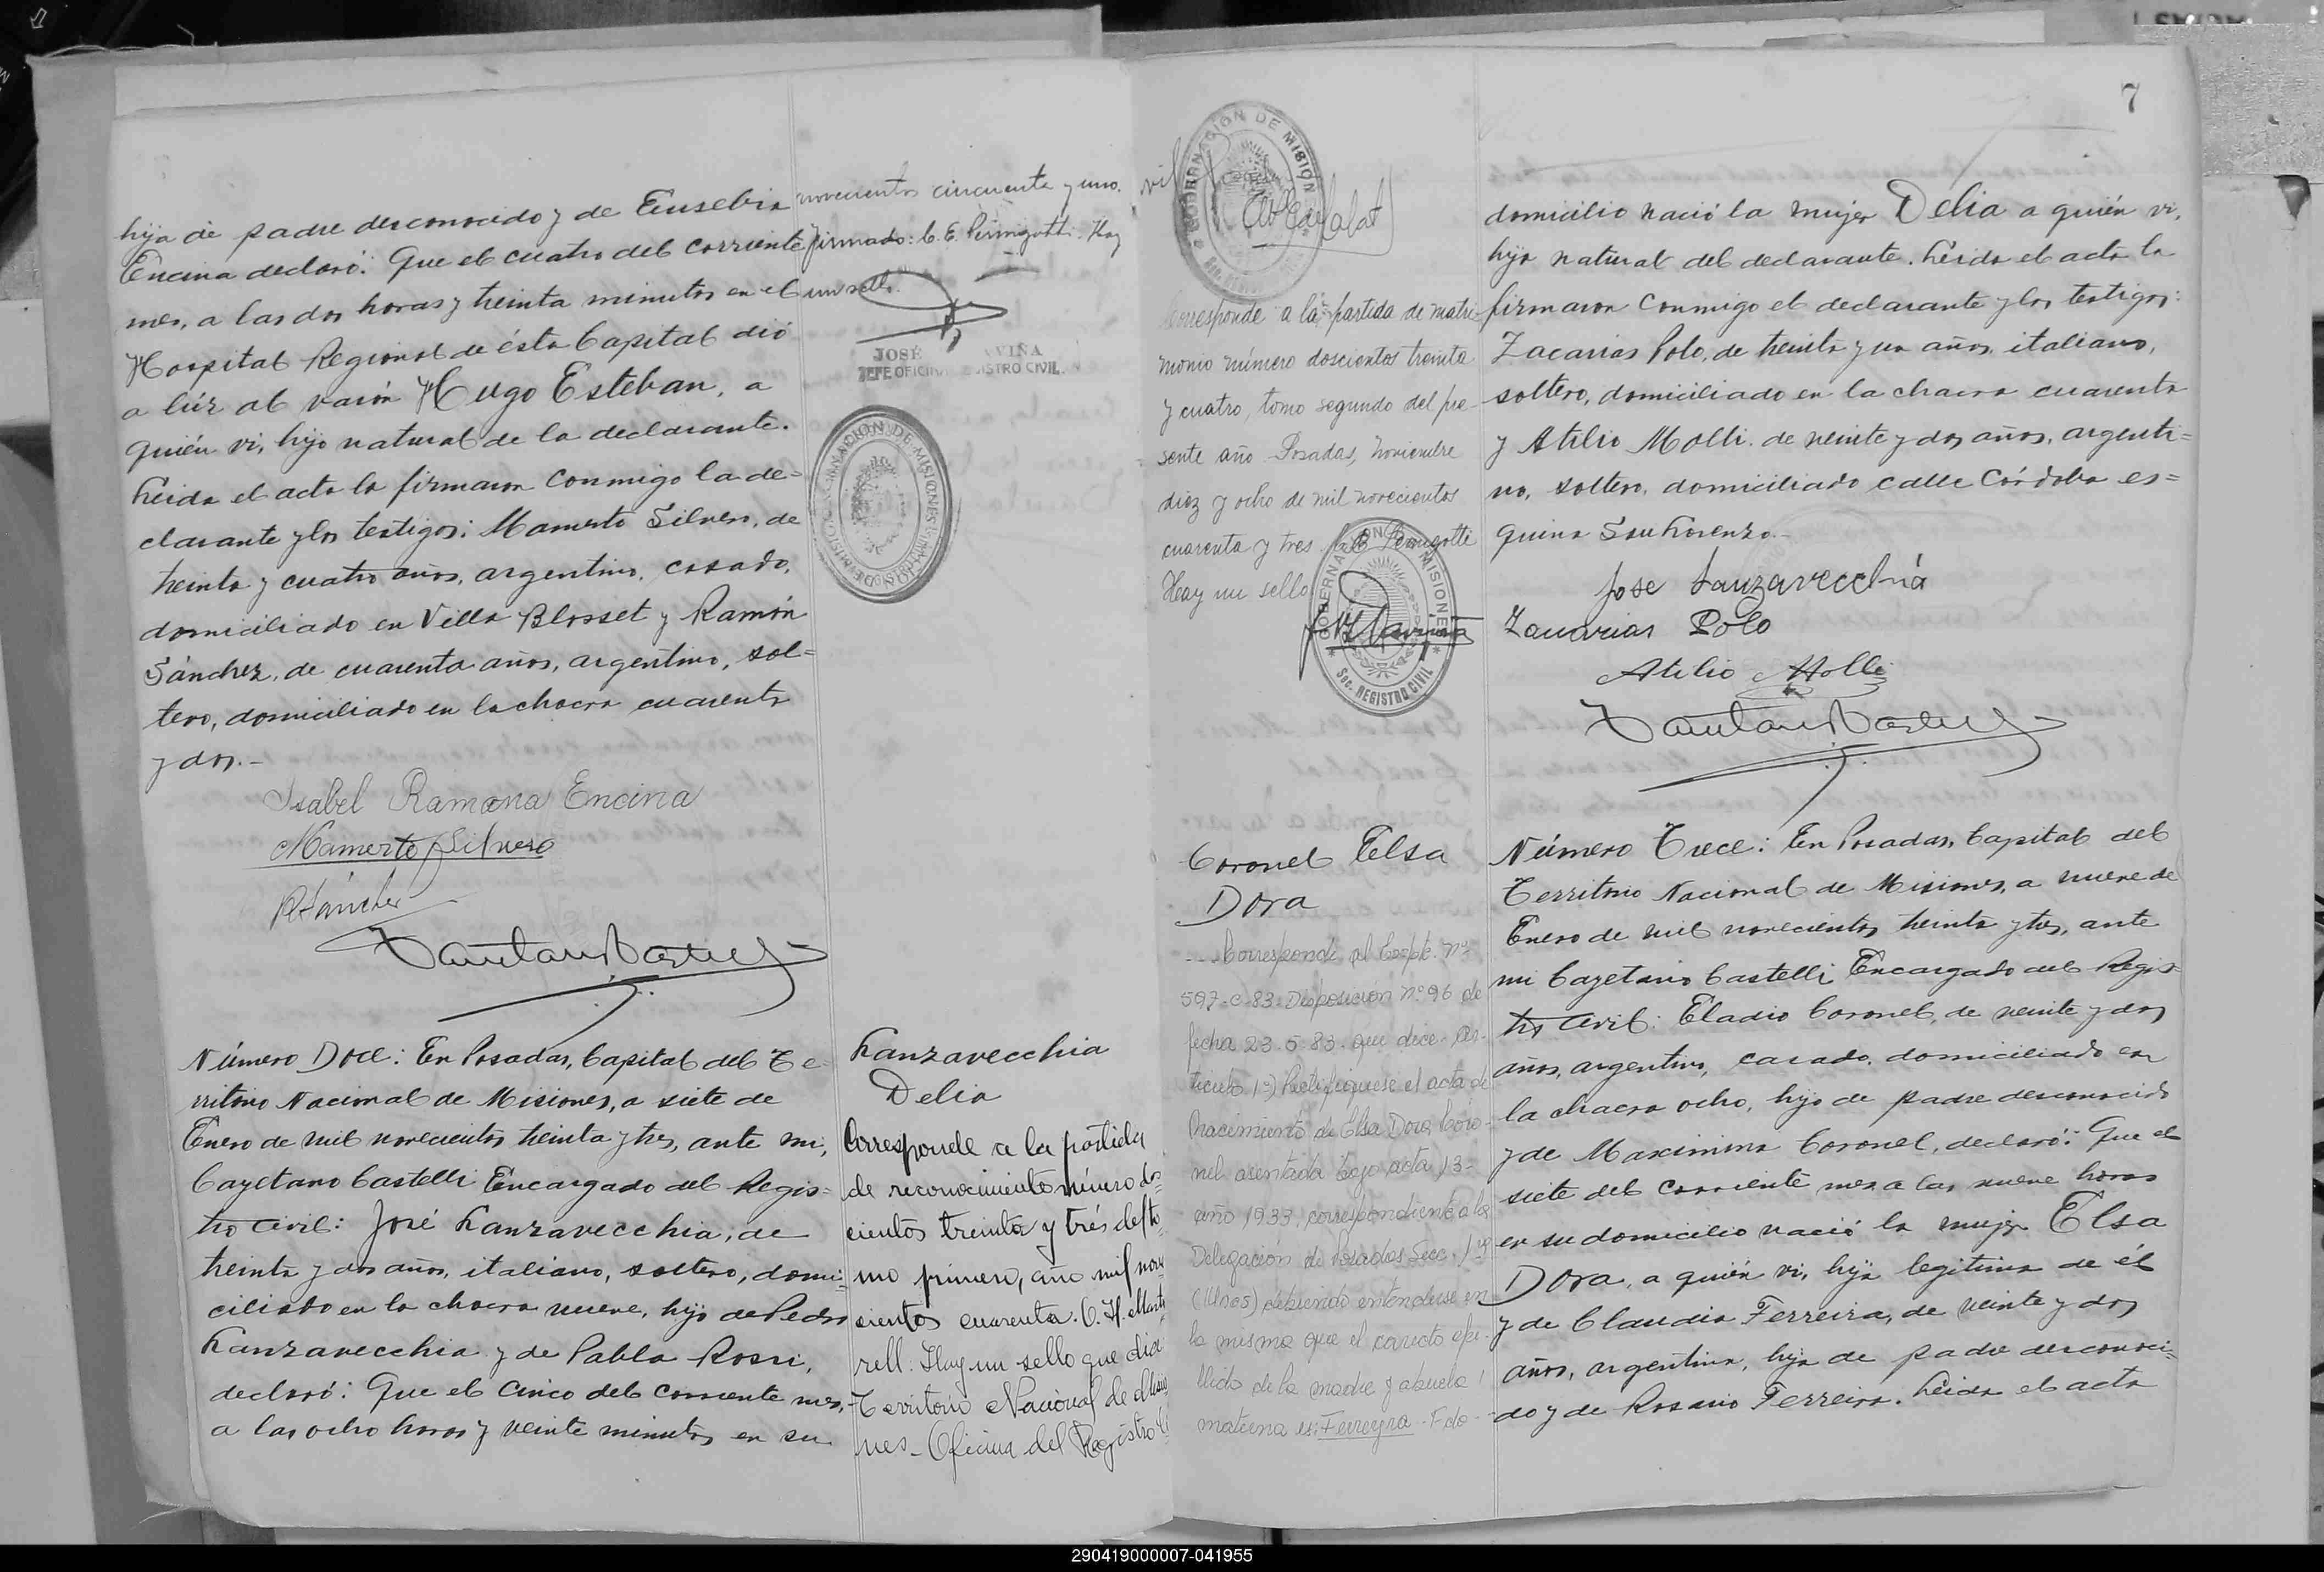 hija de padre desconocido y de Eusebia
Encina declaró: Que el cuatro del corriente
mes, a las dos horas y treinta minutos en el
Hospital Regional de ésta Capital dió
a lúz al varón Hugo Esteban, a
quién vi, hijo natural de la declarante.
Leida el acta la firmaron conmigo la de=
clarante y los testigos: Mamerto Silvero, de
treinta y cuatro años, argentino, casado,
domiciliado en Villa Blosset y Ramón
Sánchez, de cuarenta años, argentino, sol=
tero, domiciliado en la chacra cuarenta
y dos.-
Isabel Ramona Encina
Mamerto Silvero
RSánchez
novecientos cincuenta y uno.
firmado: C. E. Peringotti. Hay
un sello.
JOSÉ VIÑA
JEFE OFICINA REGISTRO CIVIL
GOBERNACION DE MISIONES
Número Doce: En Posadas, Capital del Te-
rritorio Nacional de Misiones, a siete de
Enero de mil novecientos treinta y tres, ante mi,
Cayetano Castelli Encargado del Regis=
tro Civil: José Lanzavecchia, de
treinta y dos años, italiano, soltero, domi=
ciliado en la chacra nueve, hijo de Pedro
Lanzavecchia y de Pabla Rossi,
declaró: Que el cinco del corriente mes,
a las ocho horas y veinte minutos en su
Lanzavecchia
Delia
Corresponde a la partida
de reconocimiento número dos=
cientos treinta y trés del to=
mo primero, año mil nove
cientos cuarenta. O. H. Marto
rell. Hay un sello que dice
Territorio Nacional de Misio
nes - Oficina del Registro Ci
7
vil
GOBERNACIÓN DE MISIONES
domicilio nació la mujer Delia a quién vi,
hija natural del declarante. Leida el acta la
firmaron conmigo el declarante y los testigos:
Zacarias Polo, de treinta y un años, italiano,
soltero, domiciliado en la chacra cuarenta
y Atilio Molli, de veinte y dos años, argenti=
no, soltero, domiciliado calle Córdoba es=
quina San Lorenzo.-
Jose Lanzavecchia
Zacarias Polo
Atilio Molli
Corresponde a la partida de matri-
monio número doscientos treinta
y cuatro, tomo segundo del pre-
sente año Posadas, noviembre
diez y ocho de mil novecientos
cuarenta y tres
Hay un sello
GOBERNACION DE MISIONES
Sec. REGISTRO CIVIL
Coronel Elsa
Dora
Corresponde al Expte. Nº
597-C-83-Disposición Nº 96 de
fecha 23.5.83. que dice: Ar-
tículo 1º) Rectifíquese el acta de
nacimiento de Elsa Dora Coro-
nel asentada bajo acta 13-
año 1933, correspondiente a la
Delegación de Posadas Secc. 1ra
(Mnes) debiendo entenderse en
la misma que el correcto ape-
llido de la madre y abuela
materna es: Ferreyra - Fdo -
Número Trece: En Posadas, Capital del
Territorio Nacional de Misiones, a nueve de
Enero de mil novecientos treinta y tres, ante
mi Cayetano Castelli Encargado del Regis=
tro Civil: Eladio Coronel, de veinte y dos
años, argentino, casado, domiciliado en
la chacra ocho, hijo de padre desconocido
y de Maximina Coronel, declaró: Que el
siete del corriente mes a las nueve horas
en su domicilio nació la mujer Elsa
Dora, a quién vi, hija legitima de él
y de Claudia Ferreira, de veinte y dos
años, argentina, hija de padre desconoci=
do y de Rosario Ferreira. Leida el acta
290419000007-041955